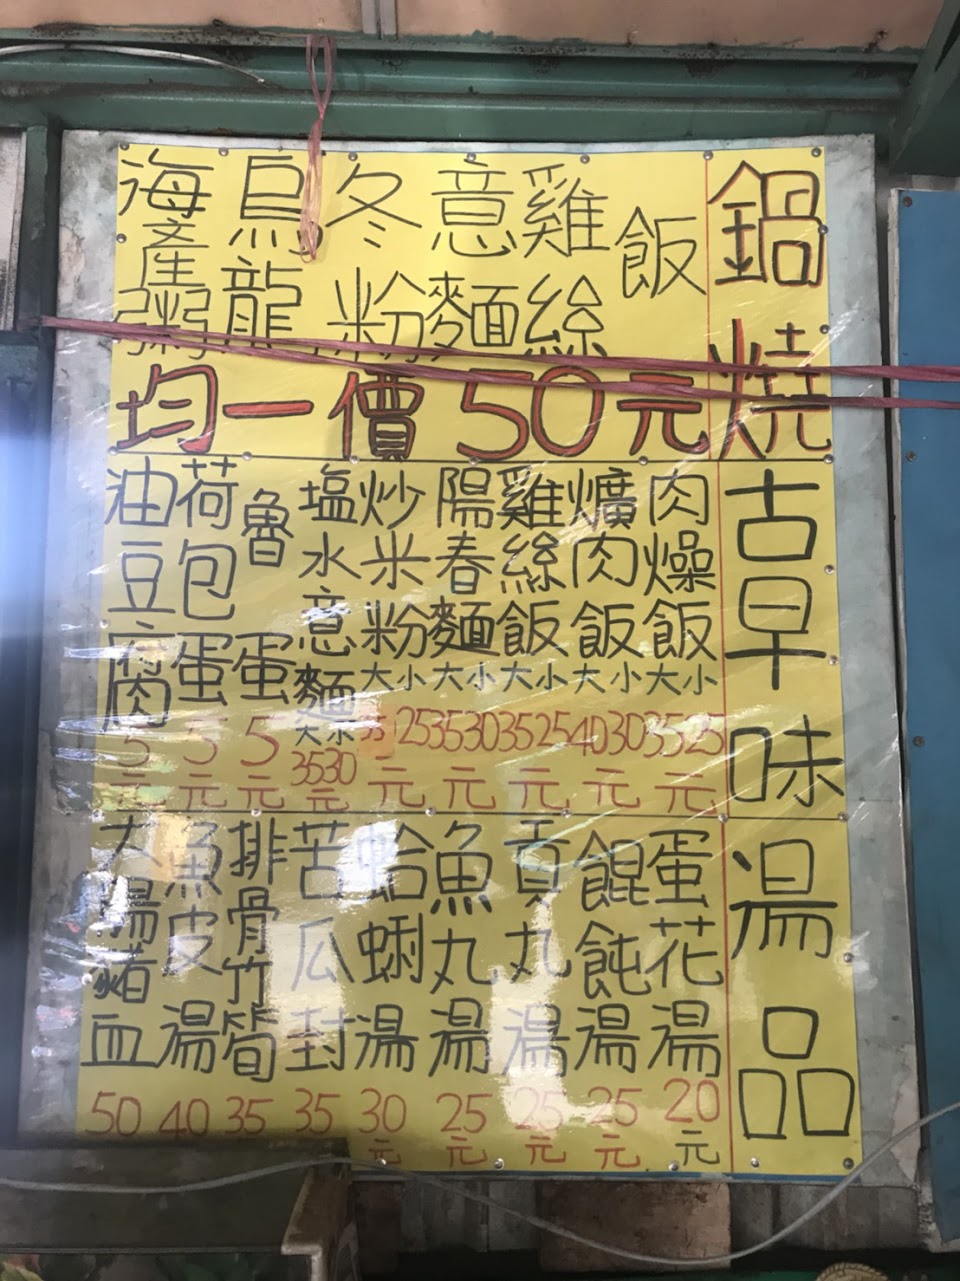 鍋燒
飯
雞絲
意麵
冬粉
烏龍
海產粥
均一價50元
古早味
肉燥飯 大小 3525元
爌肉飯 大小 4030元
雞絲飯 大小 3525元
陽春麵 大小 3530元
炒米粉 大小 25元
塩水意麵 3530元
魯蛋 5元
荷包蛋 5元
油豆腐 5元
湯品
蛋花湯 20元
餛飩湯 25元
貢丸湯 25元
魚丸湯 25元
蛤蜊湯 30元
苦瓜封 35
排骨竹筍 35
魚皮湯 40
大腸豬血 50